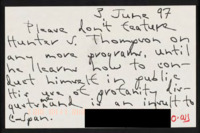 3 June 97
Please don't feature
Hunter S. Thompson on
any more programs, until
he learns how to con-
duct himself in public
His use of profanity dis-
gusts and is an insult to
C-Span.